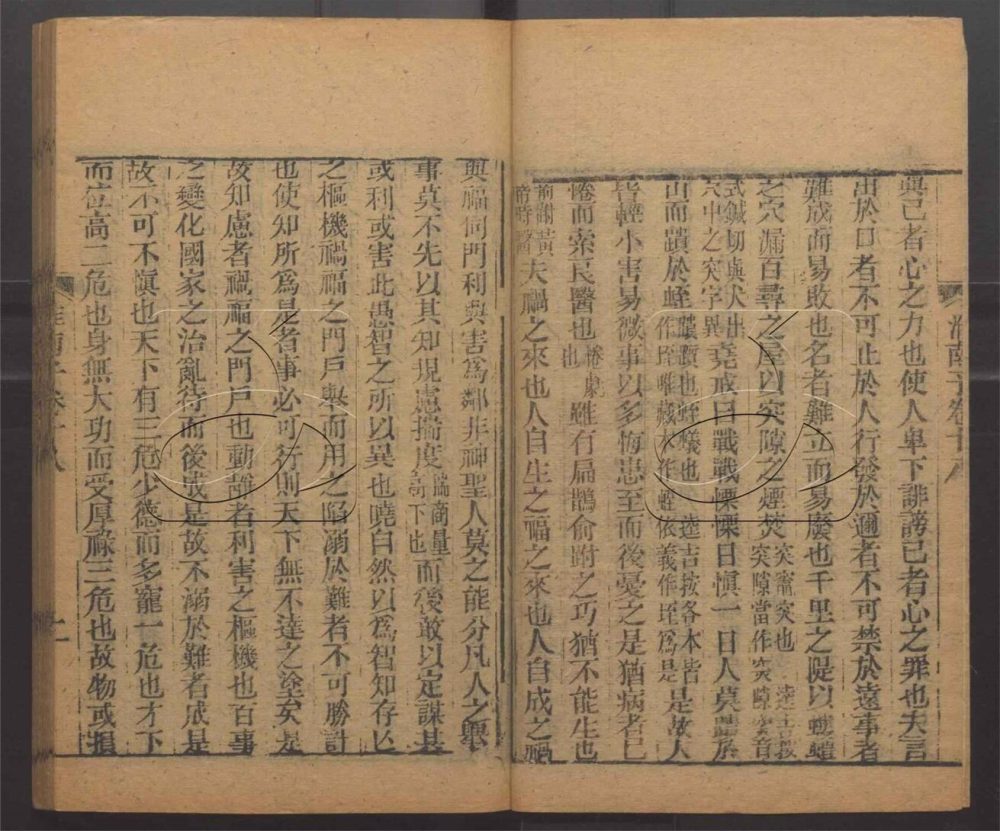 譽己者心之力也使人卑下誹謗己者心之罪也夫言
出於口者不可止於人行發於邇者不可禁於遠事者
難成而易敗也名者難立而易廢也千里之隄以螻螘
之穴漏百尋之屋以突隙之煙焚突竈突也 逵吉按突隙當作
式鍼切與犬出穴中之突字異堯戒曰戰戰慄慄日愼一日人莫蹪於
山而蹪於蛭蹪躓也蛭蟻也 逵吉按各本皆作垤唯藏本作蛭依義作垤爲是是故人
皆輕小害易微事以多悔患至而後憂之是猶病者已
惓而索良醫也惓劇也雖有扁鵲俞跗之巧猶不能生也
夫禍之來也人自生之福之來也人自成之禍
與福同門利與害爲鄰非神聖人莫之能分凡人之舉
事莫不先以其知規慮揣度揣商量高下也而後敢以定謀其
或利或害此愚智之所以異也曉自然以爲智知存亡
之樞機禍福之門戶舉而用之陷溺於難者不可勝計
也使知所爲是者事必可行則天下無不達之塗矣是
故知慮者禍福之門戶也動靜者利害之樞機也百事
之變化國家之治亂待而後成是故不溺於難者成是
故不可不愼也天下有三危少德而多寵一危也才下
而位高二危也身無大功而受厚祿三危也故物或損
淮南子卷十八